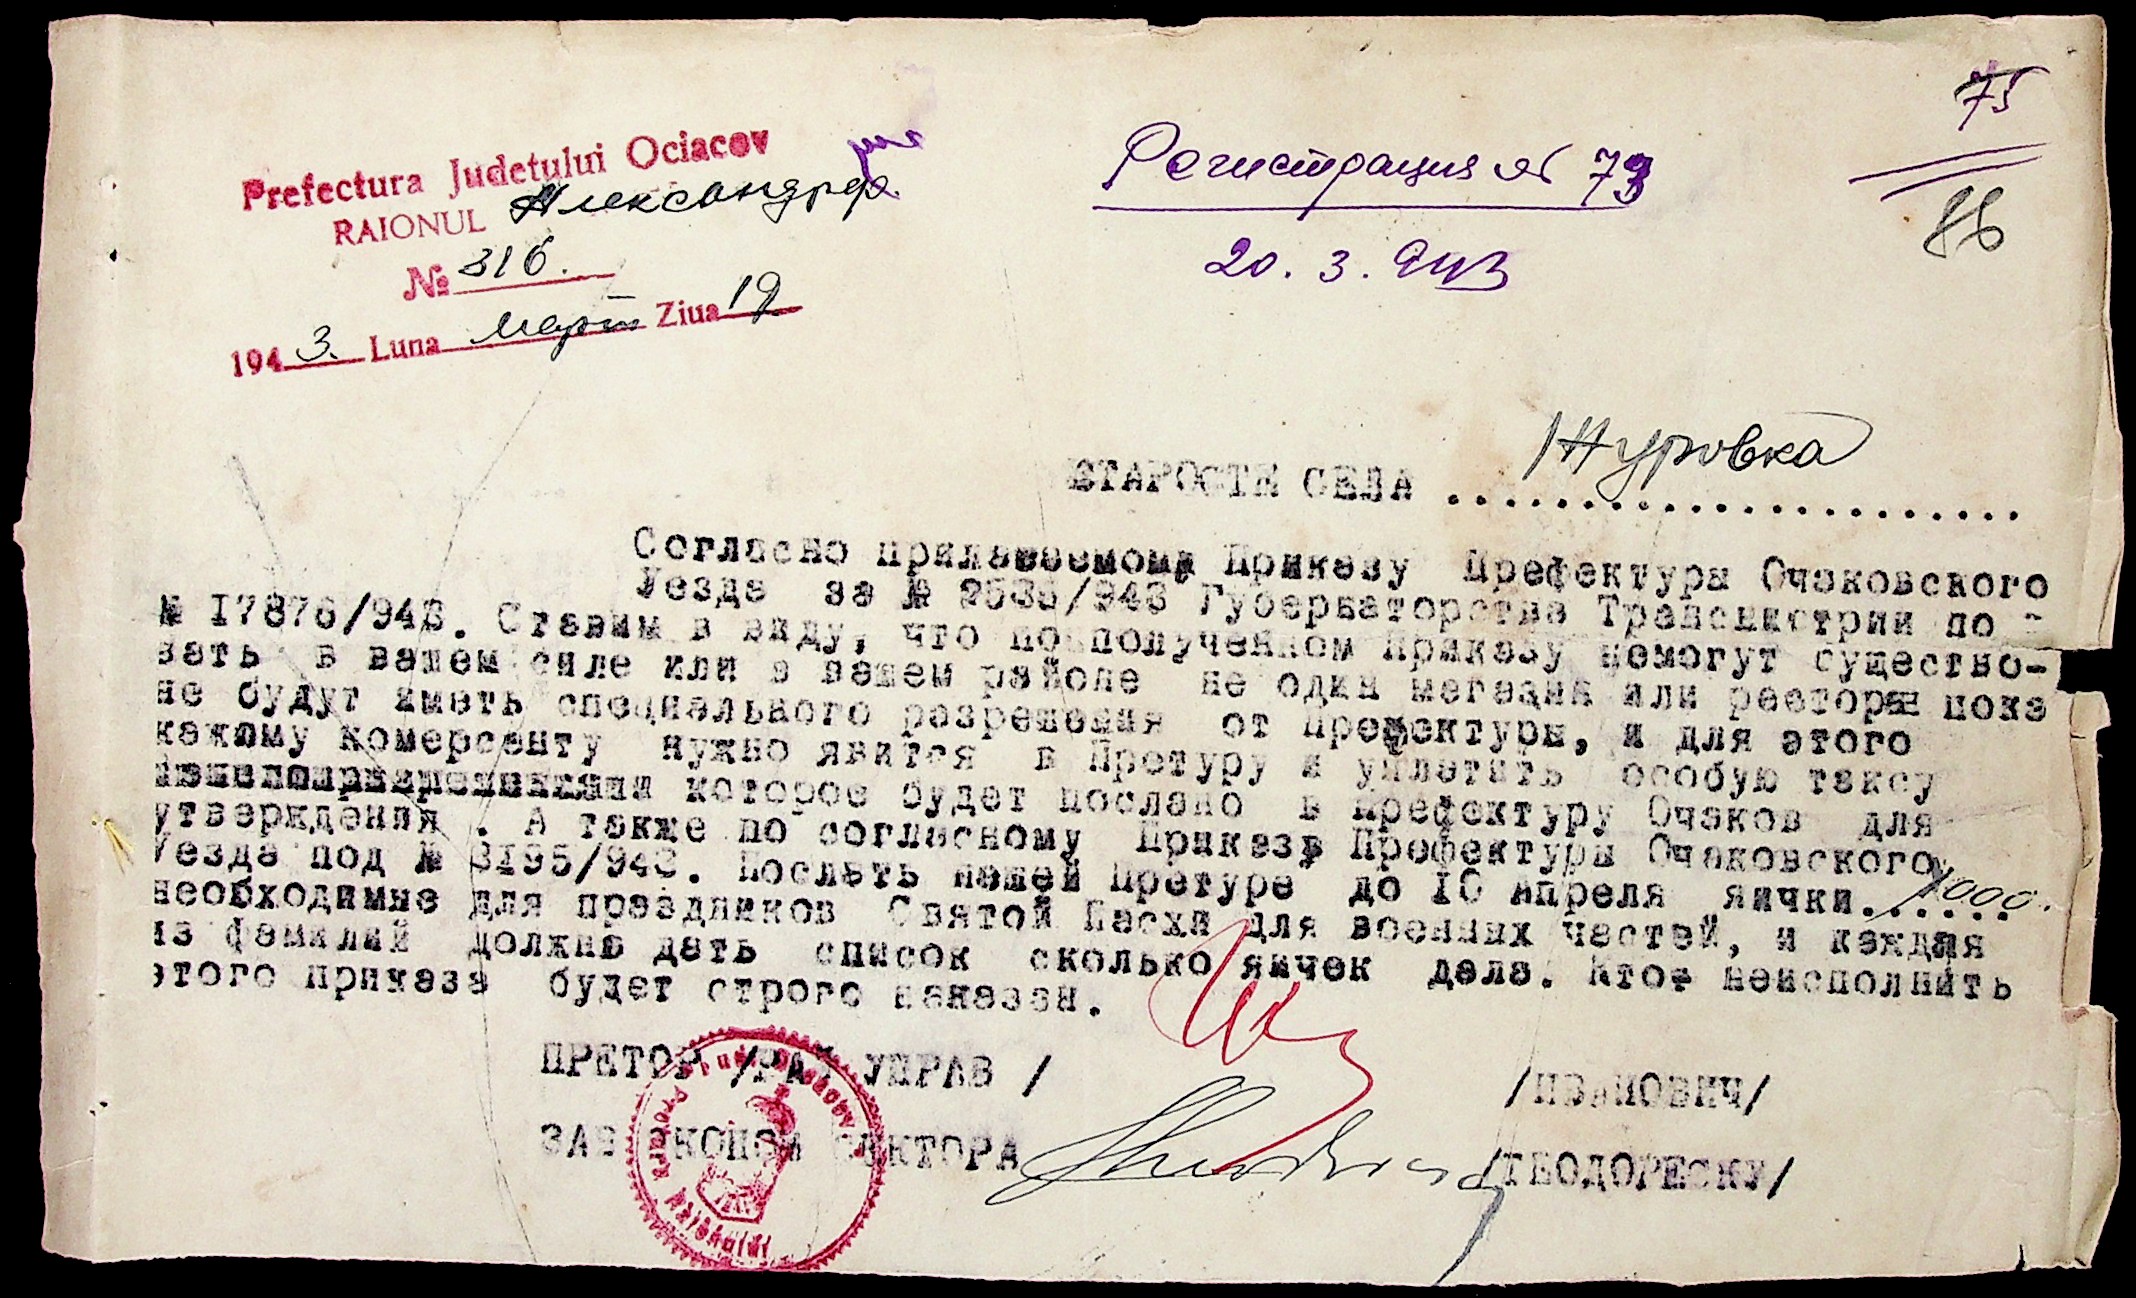 75
86
Prefectura Judetului Ociacov
RAIONUL Александрф.
№ 316.
1943. Luna Март Ziua 19
Регистрация № 73
20. 3. 943
СТАРОСТЕ СЕЛА ...................... Журовка
Согласно прилагаемому Приказу Префектура Очаковского
Уезда за № 2535/943 Губернаторства Транснистрии по
№ 17876/943. Ставим в виду, что по полученном Приказу немогут существо-
вать в вашем силе или в вашем районе не один магазин или ресторан пока
не будут иметь специального разрешения от Префектуры, и для этого
какому комерсанту нужно явится в Претуру и уплатить особую таксу
которое будет послано в Префектуру Очаков для
утверждения . А также по согласному Приказу Профектуры Очаковского
Уезда под № 3195/943. Послать нашей Претуре до 10 Апреля яички...... 1000.
необходимые для праздников Святой Пасхи для военных частей, и каждая
из фамилий должна дать список сколько яичек дала. Кто неисполнить
этого приказа будет строго наказан.
ПРЕТОР /РАЙ УПРАВ / /ИВАНОВИЧ/
ЗАВ ЭКОНОМ СЕКТОРА /ТЕОДОРЕСКУ/